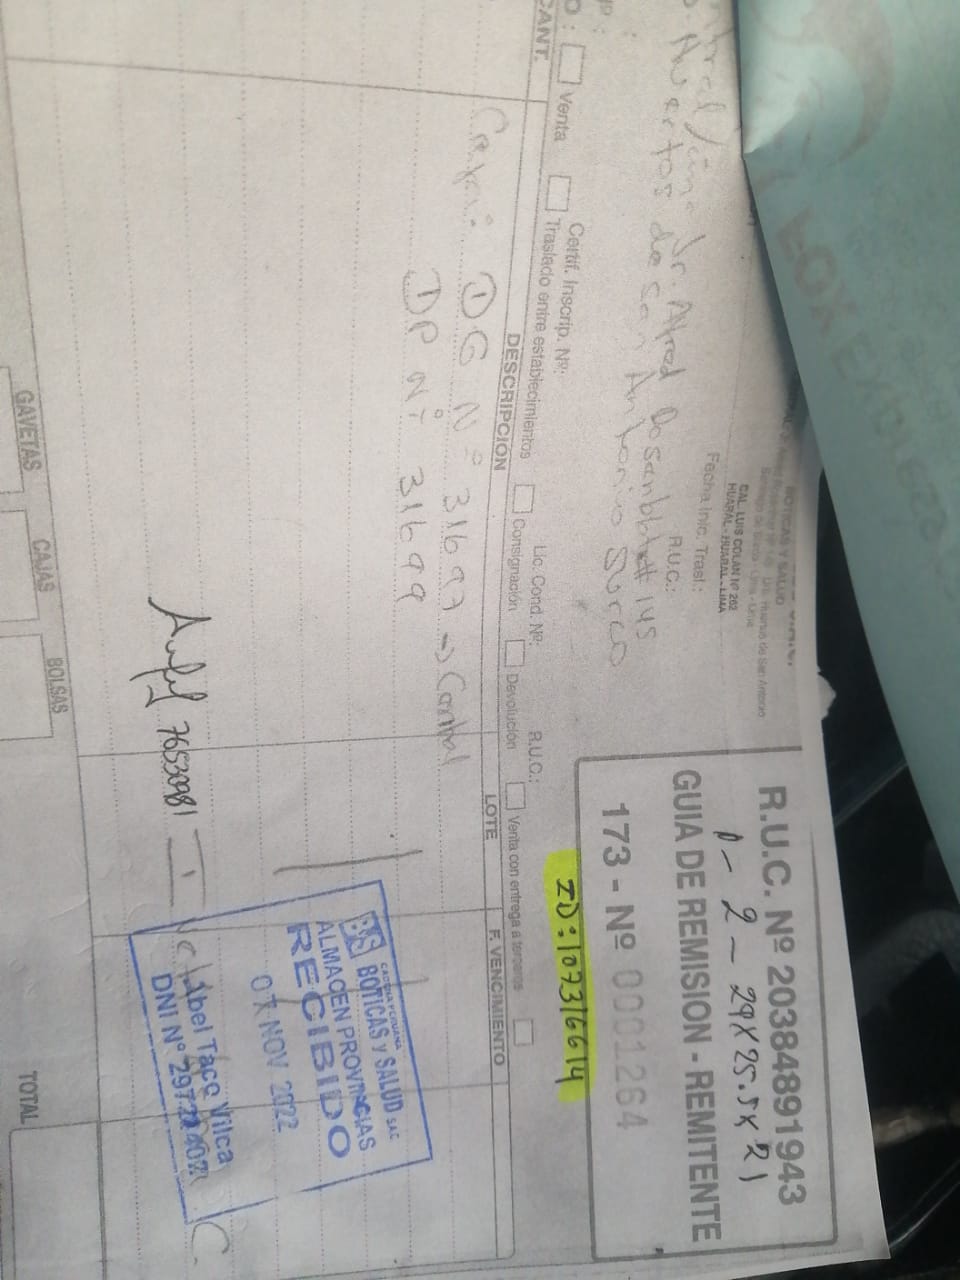 R.U.C. Nº 20384891943
1 - 2 - 29 X 25.5 X 21
GUIA DE REMISION - REMITENTE
173 - Nº 0001264
ID: 107316614
BOTICAS Y SALUD
CAL. LUIS COLAN Nº 262
HUARAL - HUARAL - LIMA
Fecha Inic. Trasl.:
R.U.C.:
Jr. Alfred Rosenblat # 145
Huertos de San Antonio Surco
Certif. Inscrip. Nº:
Lic. Cond. Nº:
R.U.C.:
Venta
Traslado entre establecimientos
Consignación
Devolución
Venta con entrega a terceros
CANT.
DESCRIPCIÓN
LOTE
F. VENCIMIENTO
DG Nº 31697 → Control
DP Nº 31699
BS BOTICAS Y SALUD SAC
CADENA PERUANA
ALMACEN PROVINCIAS
RECIBIDO
07 NOV 2022
76530981
Tacc Vilca
DNI Nº
GAVETAS
CAJAS
BOLSAS
TOTAL